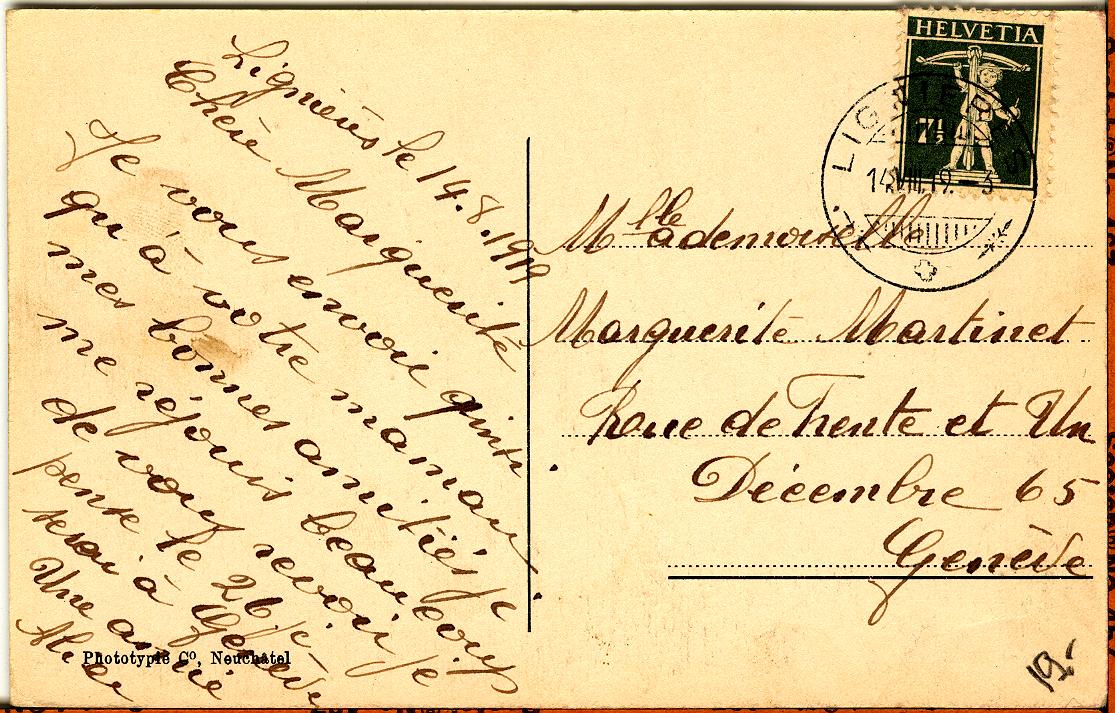 Lignières le 14.8.1919
Chère Marguerite
Je vous envoie ainsi
qu'à votre maman
mes bonnes amitiés je
me réjouis beaucoup
de vous revoir je
pense le 26 je
serai à Genève
Une amie
HELVETIA
7½
LIGNIERES
14.VIII.19.-3
Mlle ademoiselle
Marguerite Martinet
Rue de Trente et Un
Décembre 65
Genève
Phototypie Co, Neuchâtel
19.-